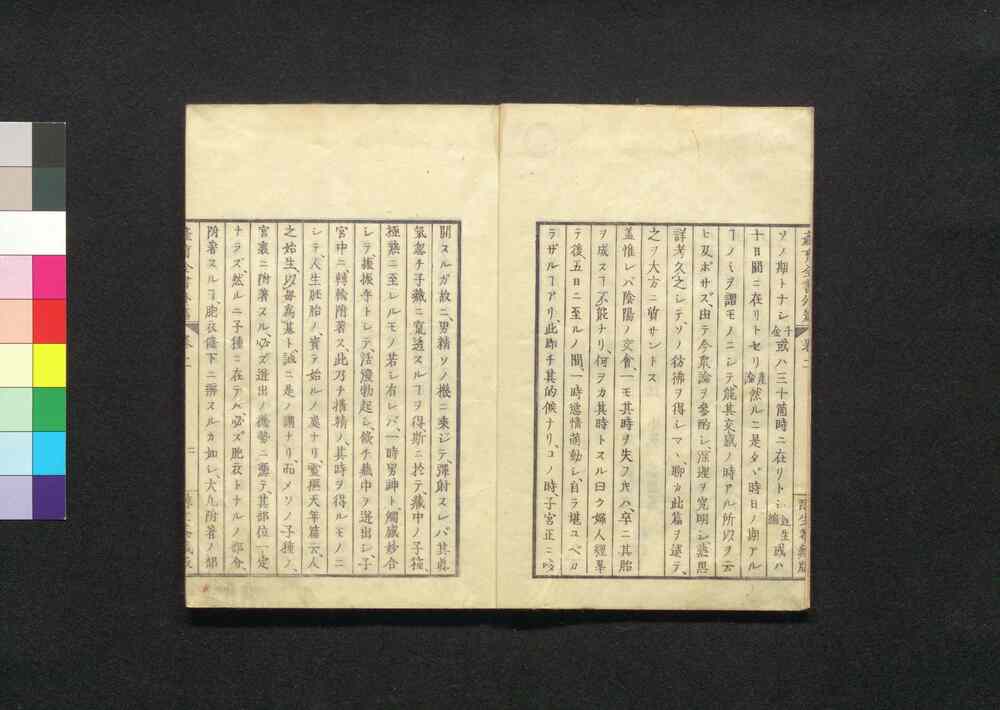 ソノ期トナシ千金或ハ三十箇時ニ在リトシ達生編或ハ
十日間ニ在リトセリ産論然ルニ是タヾ時日ノ期アル
ヿノミヲ謂モノニシテ、能其交感ノ時アル所以ヲ云
ヒ及ボサズ、由テ今衆論ヲ參酌シ深理ヲ究明シ、思
詳考久之シテ、ソノ彷彿ヲ得レマヽ聊カ此篇ヲ述テ、
之ヲ大方ニ質サントス
蓋惟レバ陰陽ノ交會、一モ其時ヲ失フ片ハ、卒ニ其胎
ヲ成スヿ不能ナリ、何ヲカ其時トスル曰ク婦人經畢
テ後、五日ニ至ルノ間、一時慾情萌動シ、自ラ堪ユベカ
ラザルヿアリ、此卽チ其的候ナリ、コノ時、子宮正ニ
開スルガ故ニ、男精ソノ機ニ乘ジテ、彈射スレバ其
氣忽チ子藏ニ竄透スルヿヲ得、斯ニ於テ、藏中ノ子
極熟ニ至レルモノ若シ有レバ、一時男神ト觸感妙合
シテ、振振奇トシテ、活潑勃起シ、倏チ藏中ヲ迸出シ、子
宮中ニ轉輪附著ス、此乃チ搆精ノ、其時ヲ得ルモノニ
シテ、人生胚胎ノ、實テ始ルノ處ナリ靈樞天年篇云、人
之始生、以母爲基ト、誠ニ是ノ謂ナリ、而メソノ子種ノ、
宮裏ニ附著スル、必ズ迸出ノ機勢ニ應テ、其部位一定
ナラズ、然ルニ子種ニ在テハ、必ズ胞衣トナルノ部分、
附著スルヿ、胞衣條下ニ辨スルカ如シ、大凡附著ノ部